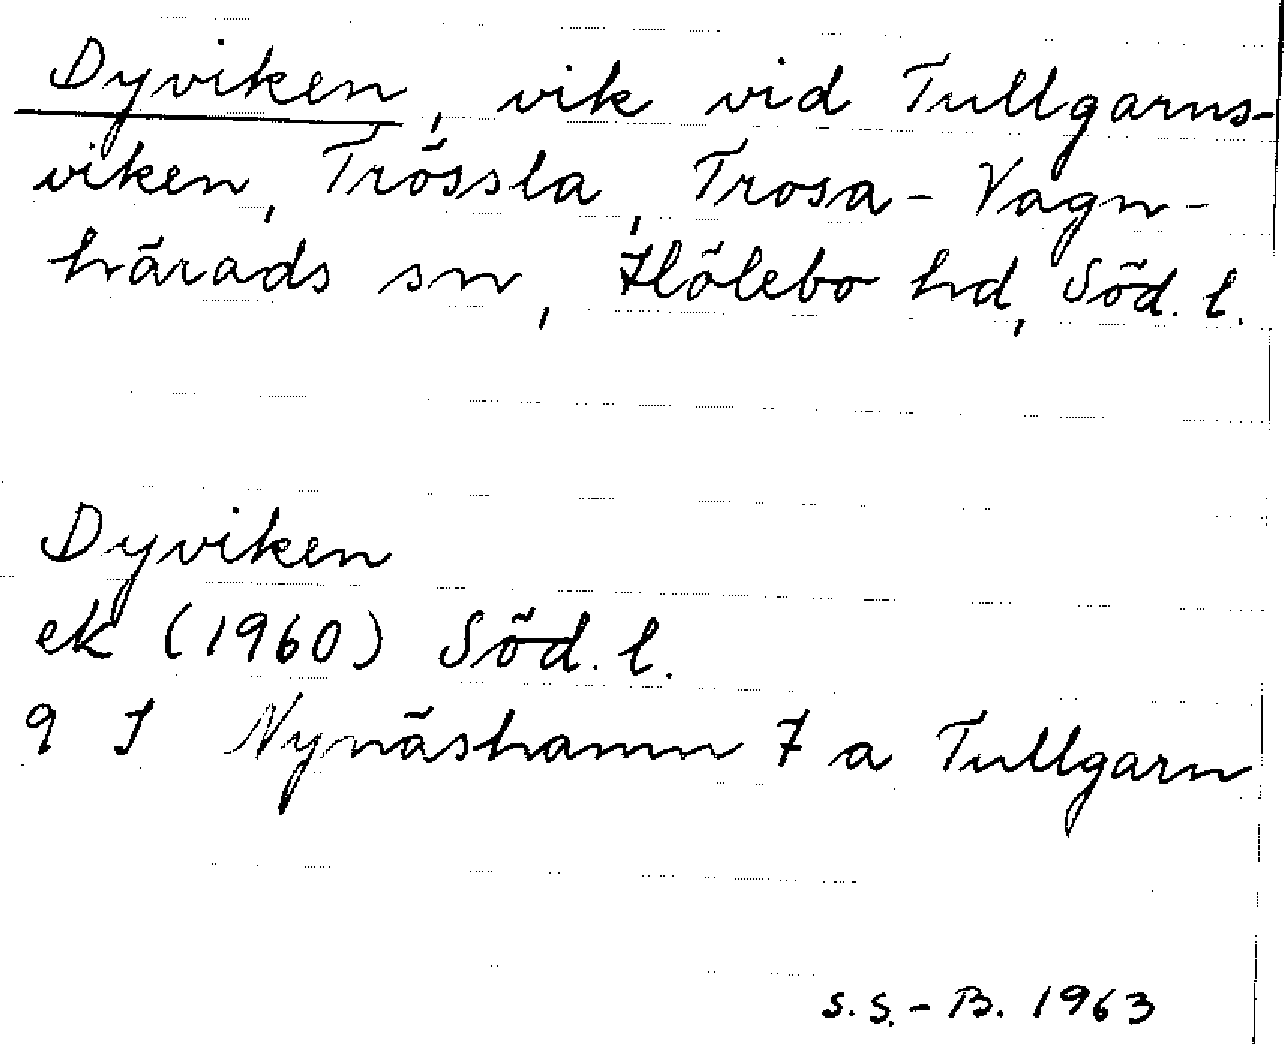 Dyviken, vik vid Tullgarns-
viken, Trössla, Trosa-Vagn-
härads sn, Hölebo hd, Söd. l.
Dyviken
ek (1960) Söd. l.
9 I Nynäshamn 7 a Tullgarn
S.S.-B. 1963